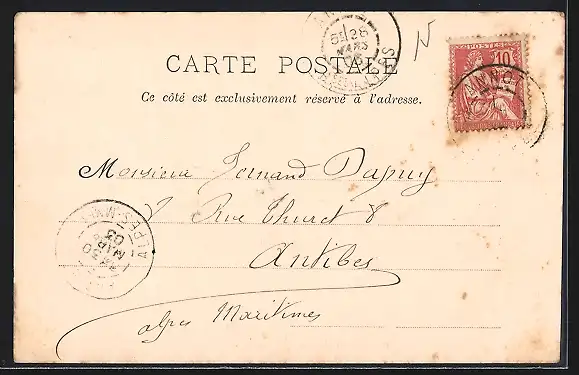 CARTE POSTALE
Ce côté est exclusivement réservé à l'adresse.
POSTES
10
Monsieur Fernand Dapuy
8 Rue Thuret 8
Antibes
Alpes Maritimes
28
MARS
30
MAR
03
ALPES-MMES